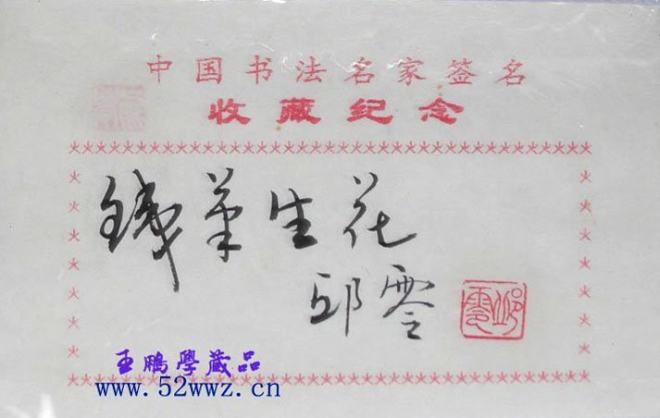 中国书法名家签名
收藏纪念
鐵筆生花
邱零
邱零
王鵬學藏品
www.52wwz.cn